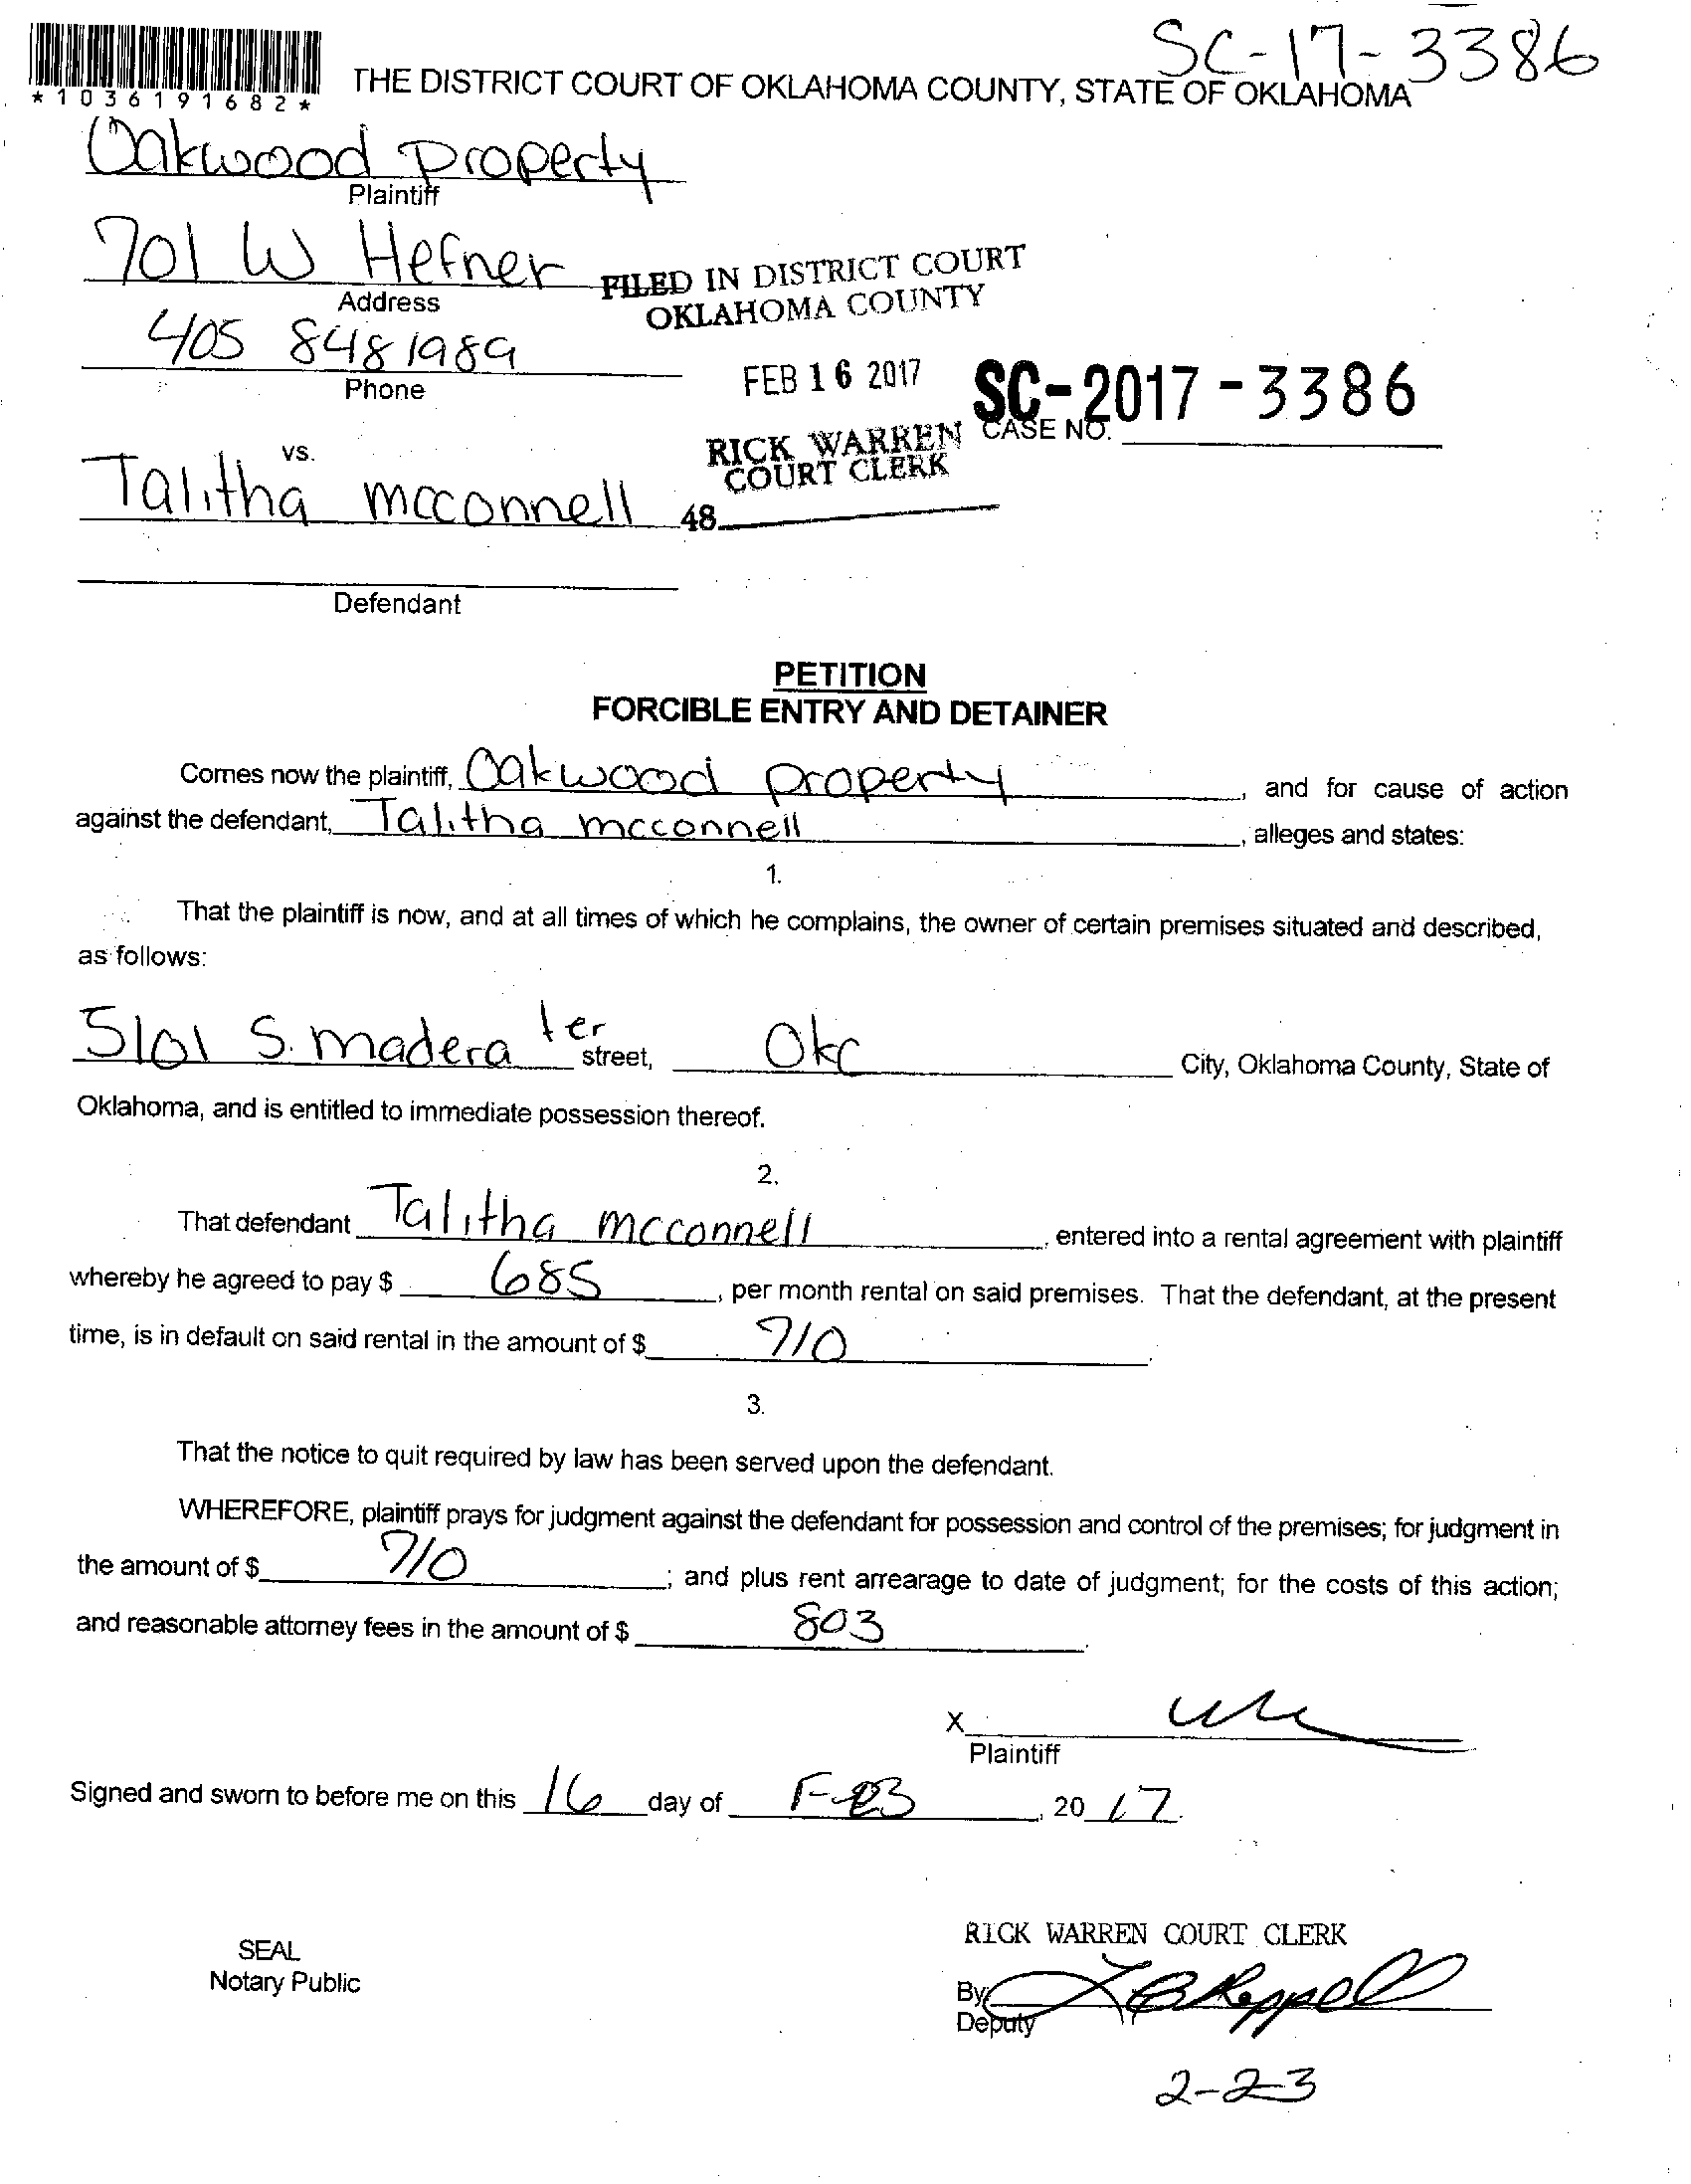 SC-17-3386
*1036191682*
THE DISTRICT COURT OF OKLAHOMA COUNTY, STATE OF OKLAHOMA
Oakwood property
Plaintiff
701 W Hefner
Address
FILED IN DISTRICT COURT
OKLAHOMA COUNTY
405 8481989
Phone
FEB 16 2017
SC-2017-3386
CASE NO.
RICK WARREN
COURT CLERK
48
vs.
Talitha mcconnell
Defendant
PETITION
FORCIBLE ENTRY AND DETAINER
Comes now the plaintiff, Oakwood property, and for cause of action
against the defendant, Talitha mcconnell, alleges and states:
1.
That the plaintiff is now, and at all times of which he complains, the owner of certain premises situated and described,
as follows:
5101 S. madera ter street, Okc City, Oklahoma County, State of
Oklahoma, and is entitled to immediate possession thereof.
2.
That defendant Talitha mcconnell, entered into a rental agreement with plaintiff
whereby he agreed to pay $ 685, per month rental on said premises. That the defendant, at the present
time, is in default on said rental in the amount of $ 710.
3.
That the notice to quit required by law has been served upon the defendant.
WHEREFORE, plaintiff prays for judgment against the defendant for possession and control of the premises; for judgment in
the amount of $ 710; and plus rent arrearage to date of judgment; for the costs of this action;
and reasonable attorney fees in the amount of $ 803.
X
Plaintiff
Signed and sworn to before me on this 16 day of FEB, 20 17.
SEAL
Notary Public
RICK WARREN COURT CLERK
By
Deputy
2-23